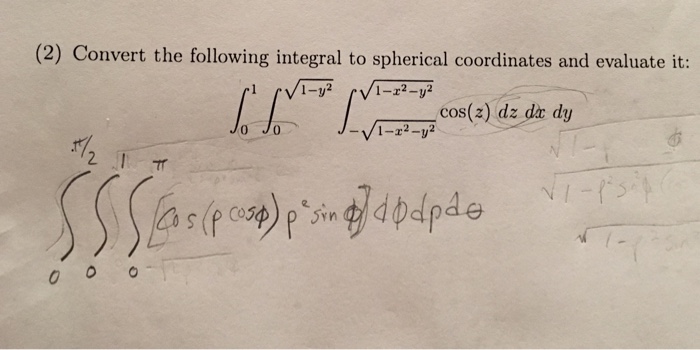 (2) Convert the following integral to spherical coordinates and evaluate it:
∫₀¹ ∫₀^√(1−y²) ∫_{−√(1−x²−y²)}^{√(1−x²−y²)} cos(z) dz dx dy
∫₀^{π/2} ∫₀¹ ∫₀^π [cos(ρ cosφ) ρ² sin φ] dφ dρ dθ